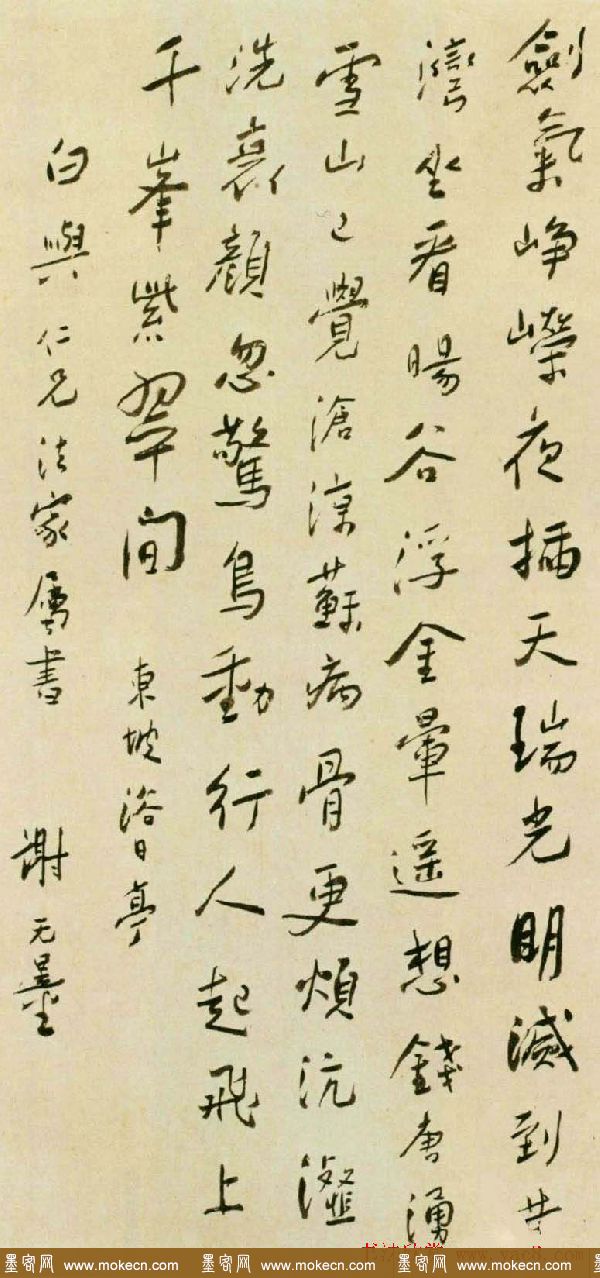 劍氣崢嶸夜插天瑞光明滅到黃
灣坐看暘谷浮金暈遥想錢唐湧
雪山已覺滄涼蘇病骨更煩沆瀣
洗衰顏忽驚鳥動行人起飛上
千峯紫翠間 東坡浴日亭
白與仁兄法家屬書 謝无量
墨客网 www.mokecn.com 墨客网 www.mokecn.com 墨客网 www.mokecn.com